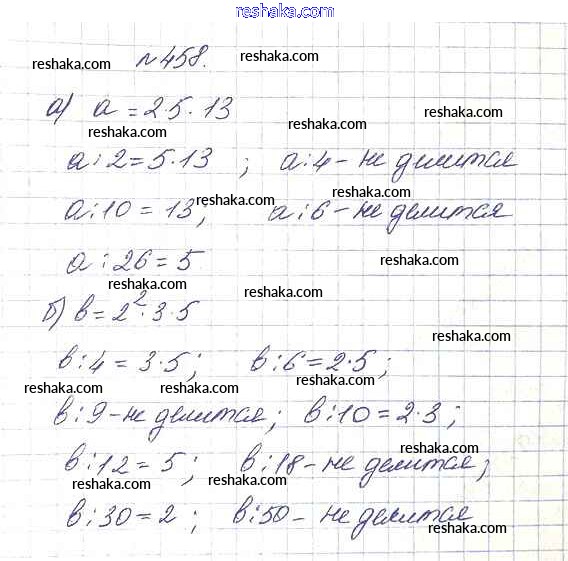 reshaka.com
№458.
reshaka.com reshaka.com
reshaka.com reshaka.com
а) a = 2·5·13
reshaka.com reshaka.com
a:2=5·13 ; a:4 - не делится
reshaka.com reshaka.com
a:10 = 13; a:6 - не делится
a:26=5
reshaka.com
reshaka.com reshaka.com
б) b = 2²·3·5
reshaka.com
b:4 = 3·5; b:6=2·5;
reshaka.com reshaka.com reshaka.com
b:9 - не делится; b:10=2·3;
reshaka.com
b:12=5; b:18 - не делится;
reshaka.com reshaka.com
b:30=2; b:50 - не делится
reshaka.com